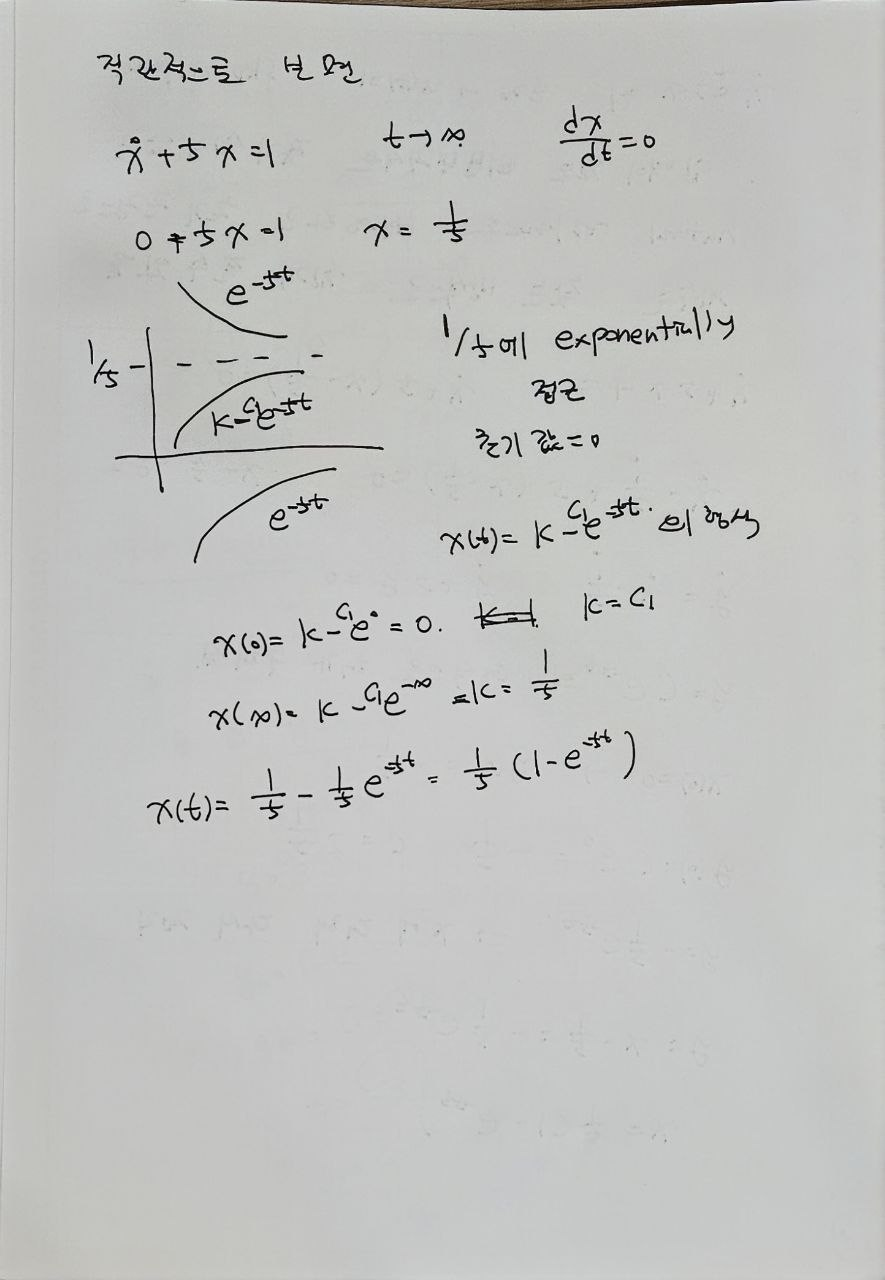 직관적으로 보면
ẋ + 5x = 1   t → ∞   dx/dt = 0
0 + 5x = 1   x = 1/5
e^{-5t}
1/5
k - C₁e^{-5t}
e^{-5t}
1/5에 exponentially
접근
초기 값 = 0
x(t) = k - C₁e^{-5t}의 형식
x(0) = k - C₁e^0 = 0.   k = C₁
x(∞) = k - C₁e^{-∞} = k = 1/5
x(t) = 1/5 - 1/5 e^{-5t} = 1/5 (1 - e^{-5t})